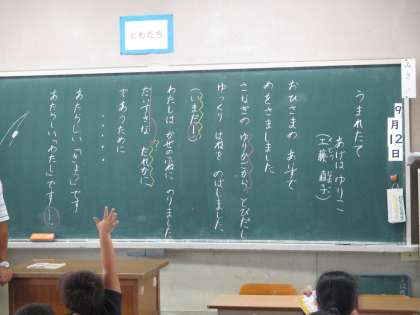 ともだち
9月12日
うまれたて
あげは ゆりこ
(工藤 直子)
くどう
おひさまの あいずで
めをさましました
さなぎの ゆりかごから とびだし
ゆっくり はねを のばしました
(いまだ!)
わたしは かぜのふねに のりました
だいすきな だれかに
であうために
・・・・・
あたらしい「きょう」です
あたらしい「わたし」です!